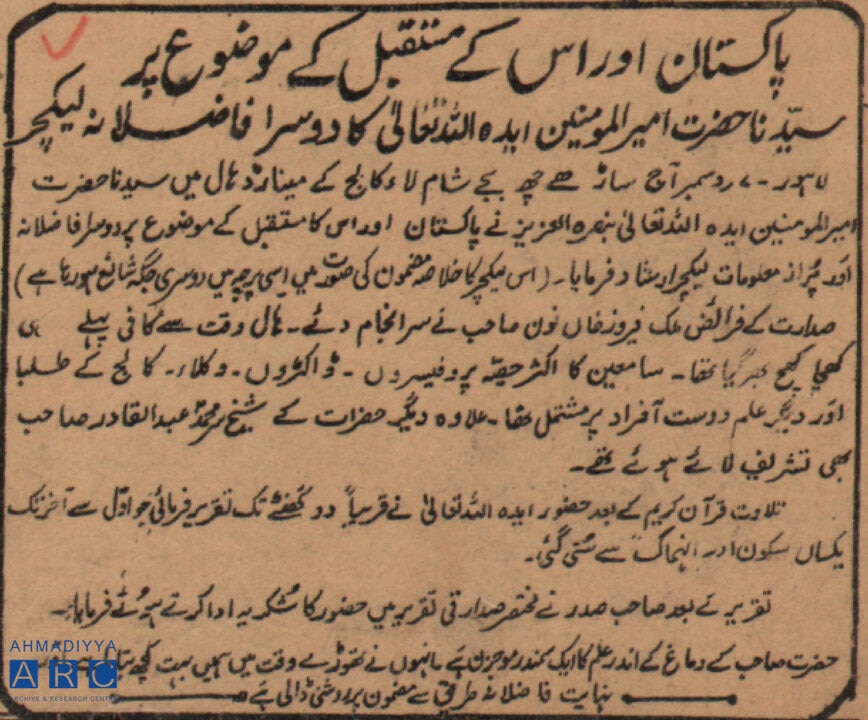 پاکستان اور اس کے مستقبل کے موضوع پر
سیدنا حضرت امیرالمومنین ایدہ اللہ تعالیٰ کا دوسرا فاضلانہ لیکچر
لاہور - ۷ دسمبر آج ساڑھے چھ بجے شام لاء کالج کے مینارڈ ہال میں سیدنا حضرت
امیرالمومنین ایدہ اللہ تعالیٰ بنصرہ العزیز نے پاکستان اور اس کا مستقبل کے موضوع پر دوسرا فاضلانہ
اور پُر از معلومات لیکچر ارشاد فرمایا۔ (اس لیکچر کا خلاصہ مضمون کی صورت میں اسی پرچہ میں دوسری جگہ شائع ہو رہا ہے)
صدارت کے فرائض ملک فیروز خاں نون صاحب نے سرانجام دئے۔ ہال وقت سے کافی پہلے ہی
کھچا کھچ بھر گیا تھا۔ سامعین کا اکثر حصہ پروفیسروں - ڈاکٹروں - وکلاء - کالج کے طلبا
اور دیگر علم دوست افراد پر مشتمل تھا۔ علاوہ دیگر حضرات کے شیخ سر محمد عبدالقادر صاحب
بھی تشریف لائے ہوئے تھے۔
تلاوت قرآن کریم کے بعد حضور ایدہ اللہ تعالیٰ نے قریباً دو گھنٹے تک تقریر فرمائی جو اول سے آخر تک
یکساں سکون اور انہماک سے سُنی گئی۔
تقریر کے بعد صاحب صدر نے مختصر صدارتی تقریر میں حضور کا شکریہ ادا کرتے ہوئے فرمایا۔
حضرت صاحب کے دماغ کے اندر علم کا ایک سمندر موجزن ہے۔ انہوں نے تھوڑے وقت میں ہمیں بہت کچھ بتایا ہے اور
نہایت فاضلانہ طریق سے مضمون پر روشنی ڈالی ہے
AHMADIYYA
ARC
ARCHIVE & RESEARCH CENTRE